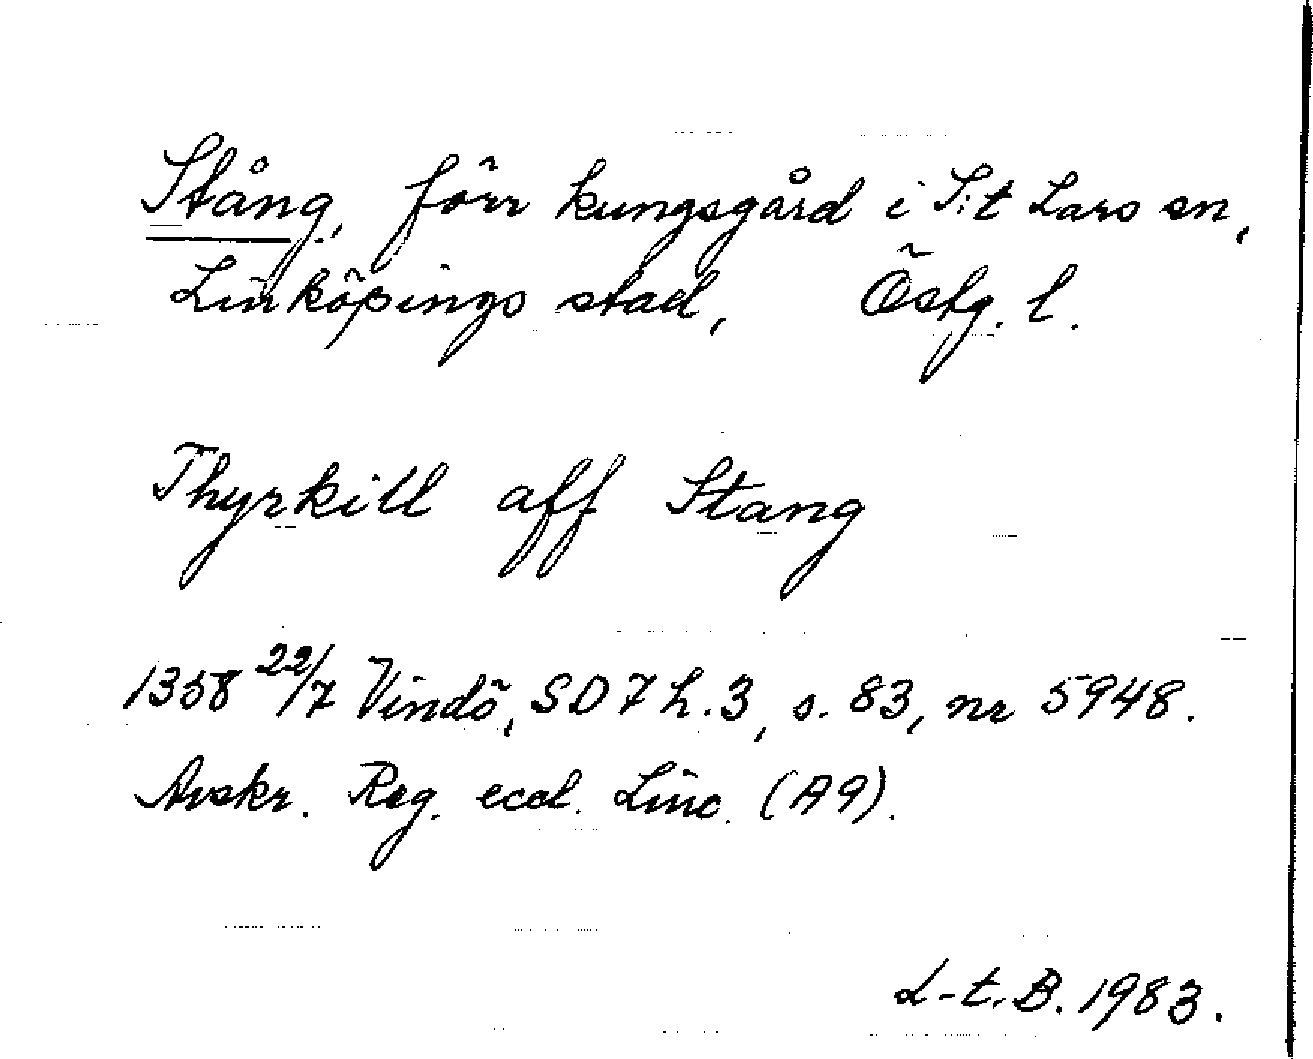 Stång, förr kungsgård i S:t Lars sn,
Linköpings stad, Östg. l.
Thyrkill aff Stang
1358 22/7 Vindö, SD 7 h.3, s. 83, nr 5948.
Avskr. Reg. eccl. Linc. (A 9).
L-t. B. 1983.